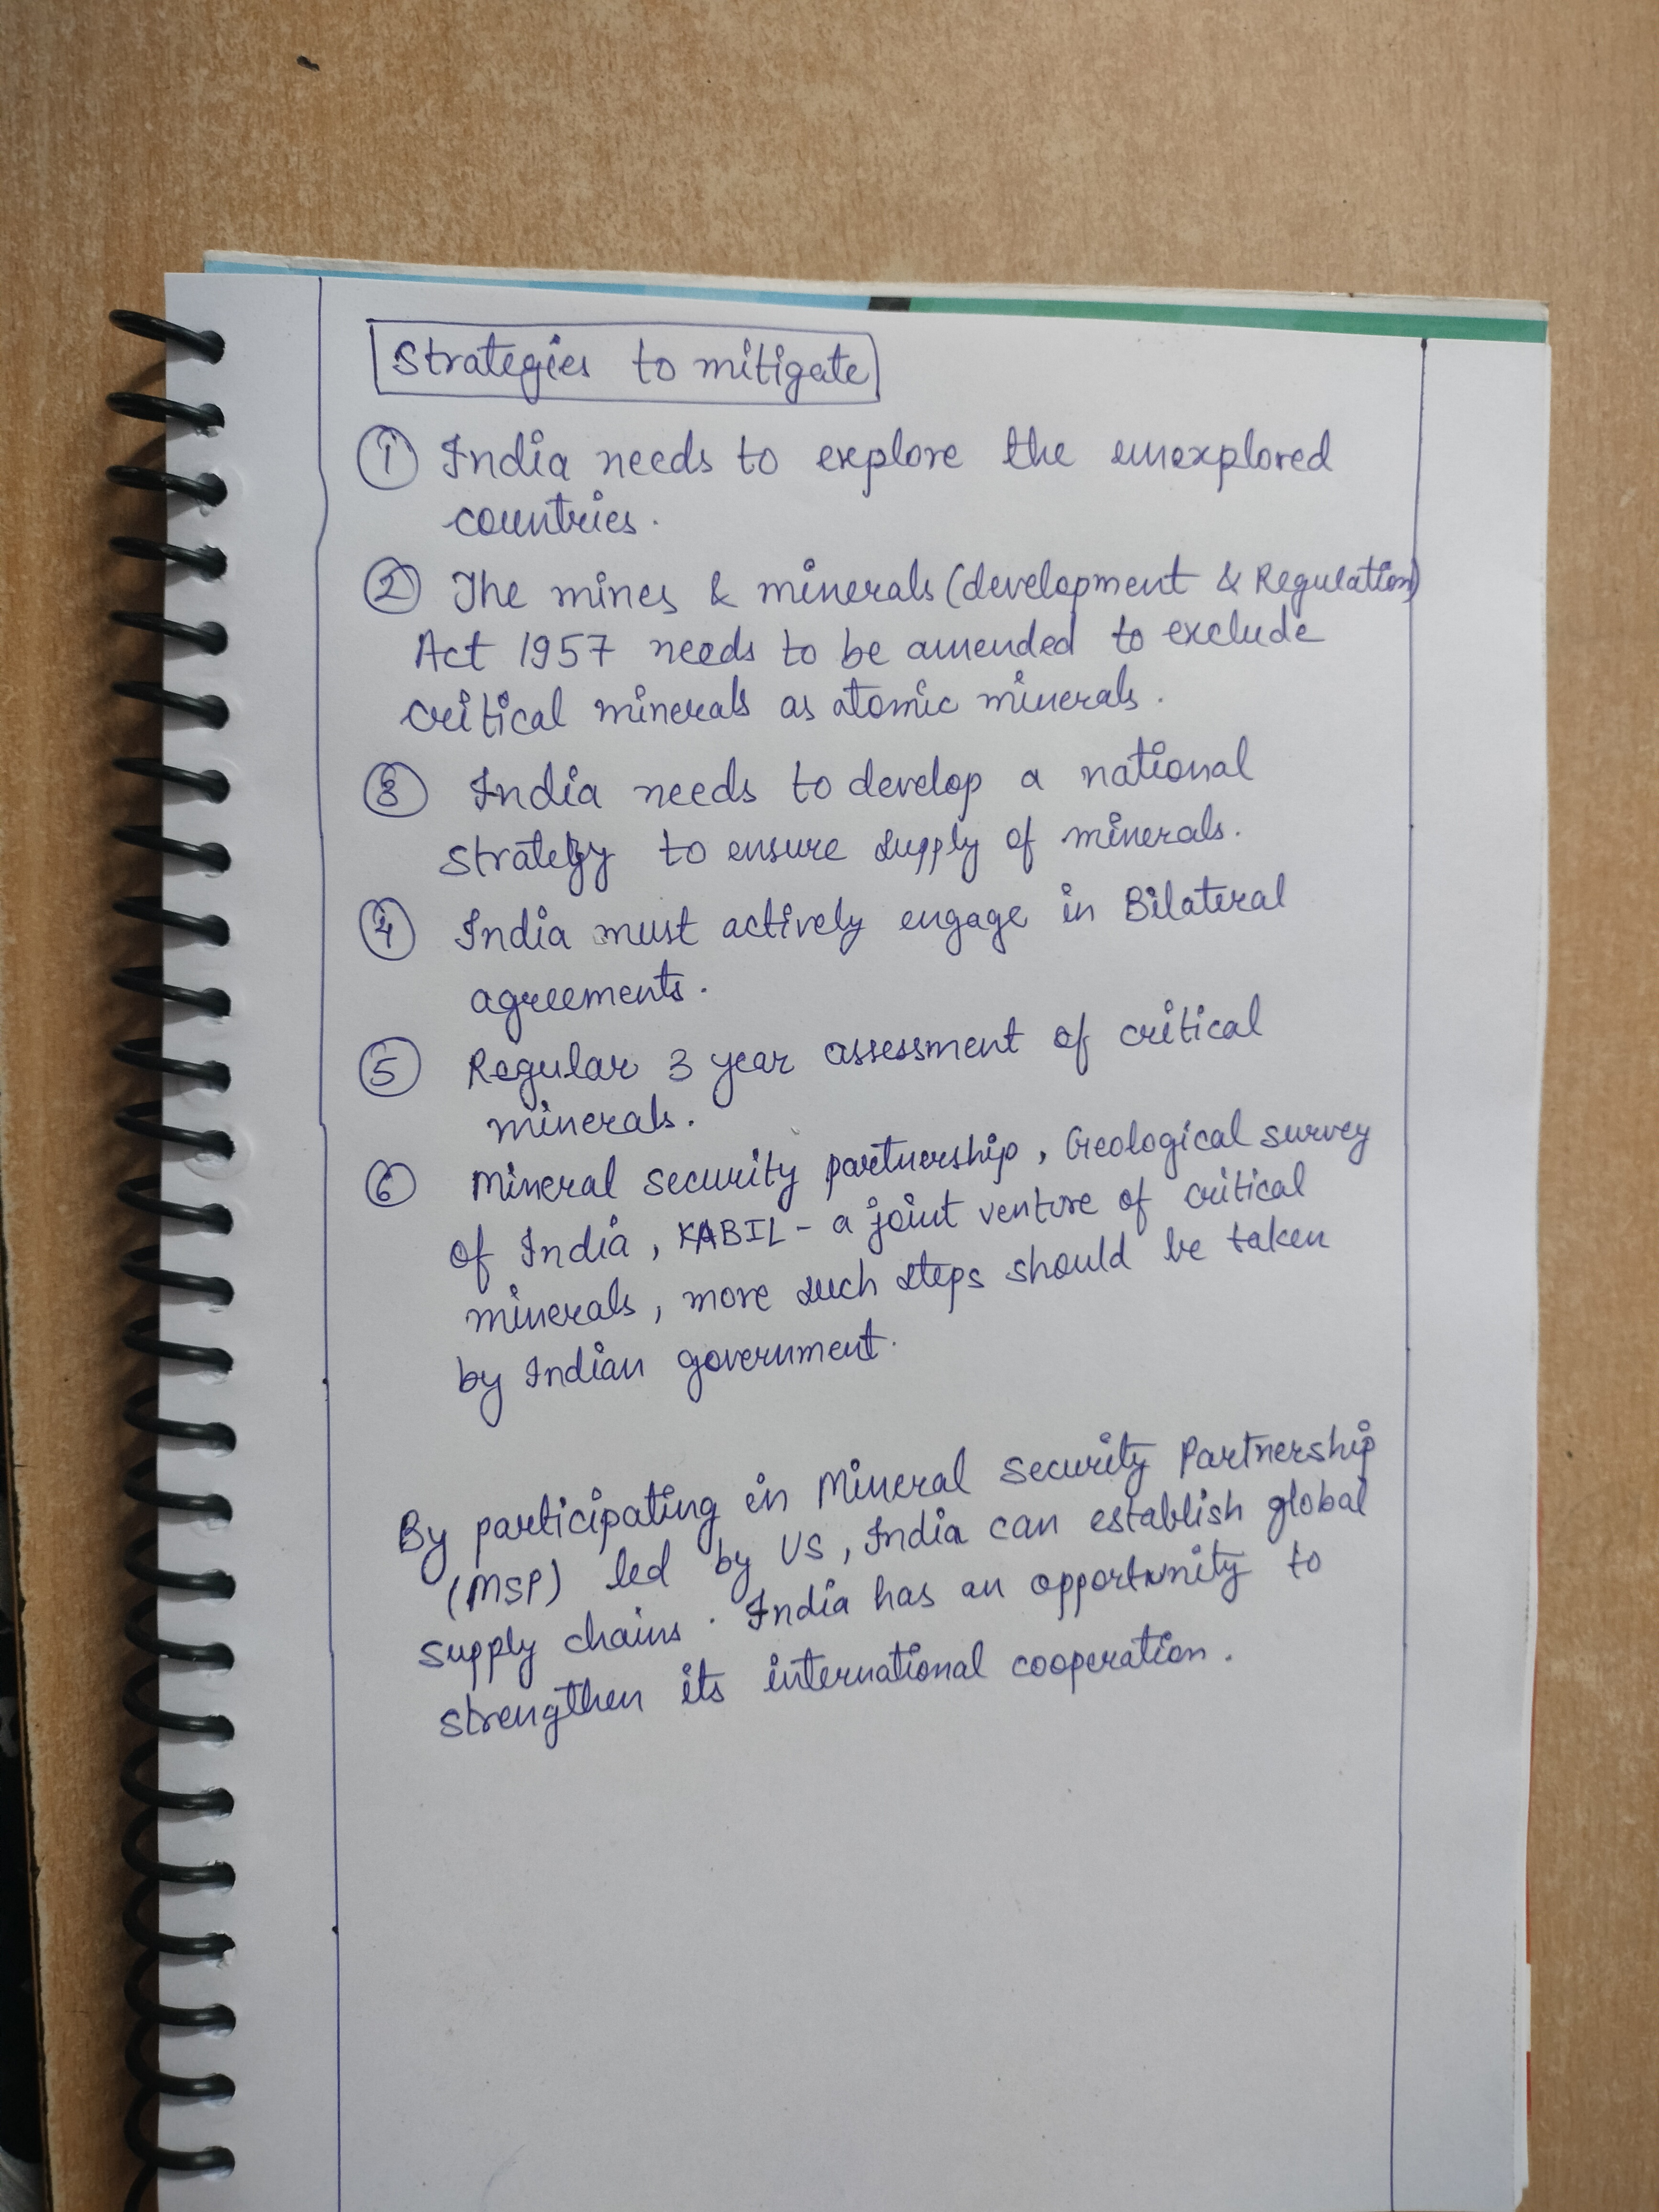 Strategies to mitigate
① India needs to explore the unexplored
countries.
② The mines & minerals (development & Regulation)
Act 1957 needs to be amended to exclude
critical minerals as atomic minerals.
③ India needs to develop a national
strategy to ensure supply of minerals.
④ India must actively engage in Bilateral
agreements.
⑤ Regular 3 year assessment of critical
minerals.
⑥ Mineral security partnership, Geological survey
of India, KABIL - a joint venture of critical
minerals, more such steps should be taken
by Indian government.
By participating in Mineral Security Partnership
(MSP) led by US, India can establish global
supply chains. India has an opportunity to
strengthen its international cooperation.